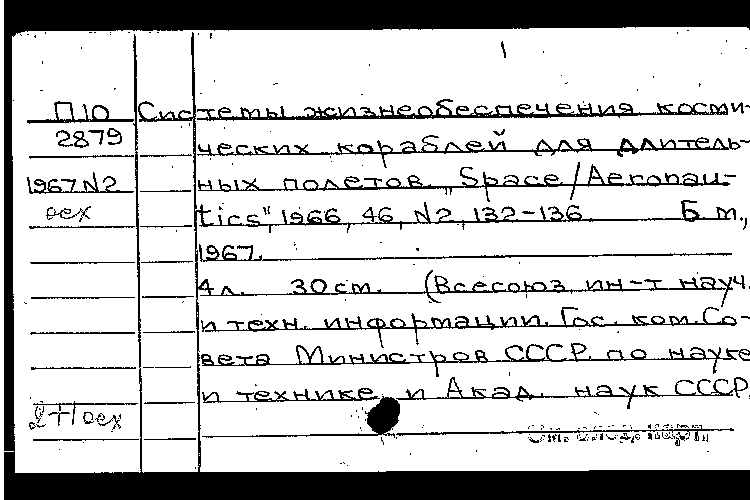 1
П10 Системы жизнеобеспечения косми-
2879 ческих кораблей для длитель-
1967 N2 ных полетов. „Space/Aeronau-
оех tics", 1966, 46, N2, 132-136. Б.м.,
1967.
4л. 30 см. (Всесоюз. ин-т науч.
и техн. информации. Гос. ком. Со-
вета Министров СССР по науке
и технике и Акад. наук СССР.
2+1 оех
См. след. карт.